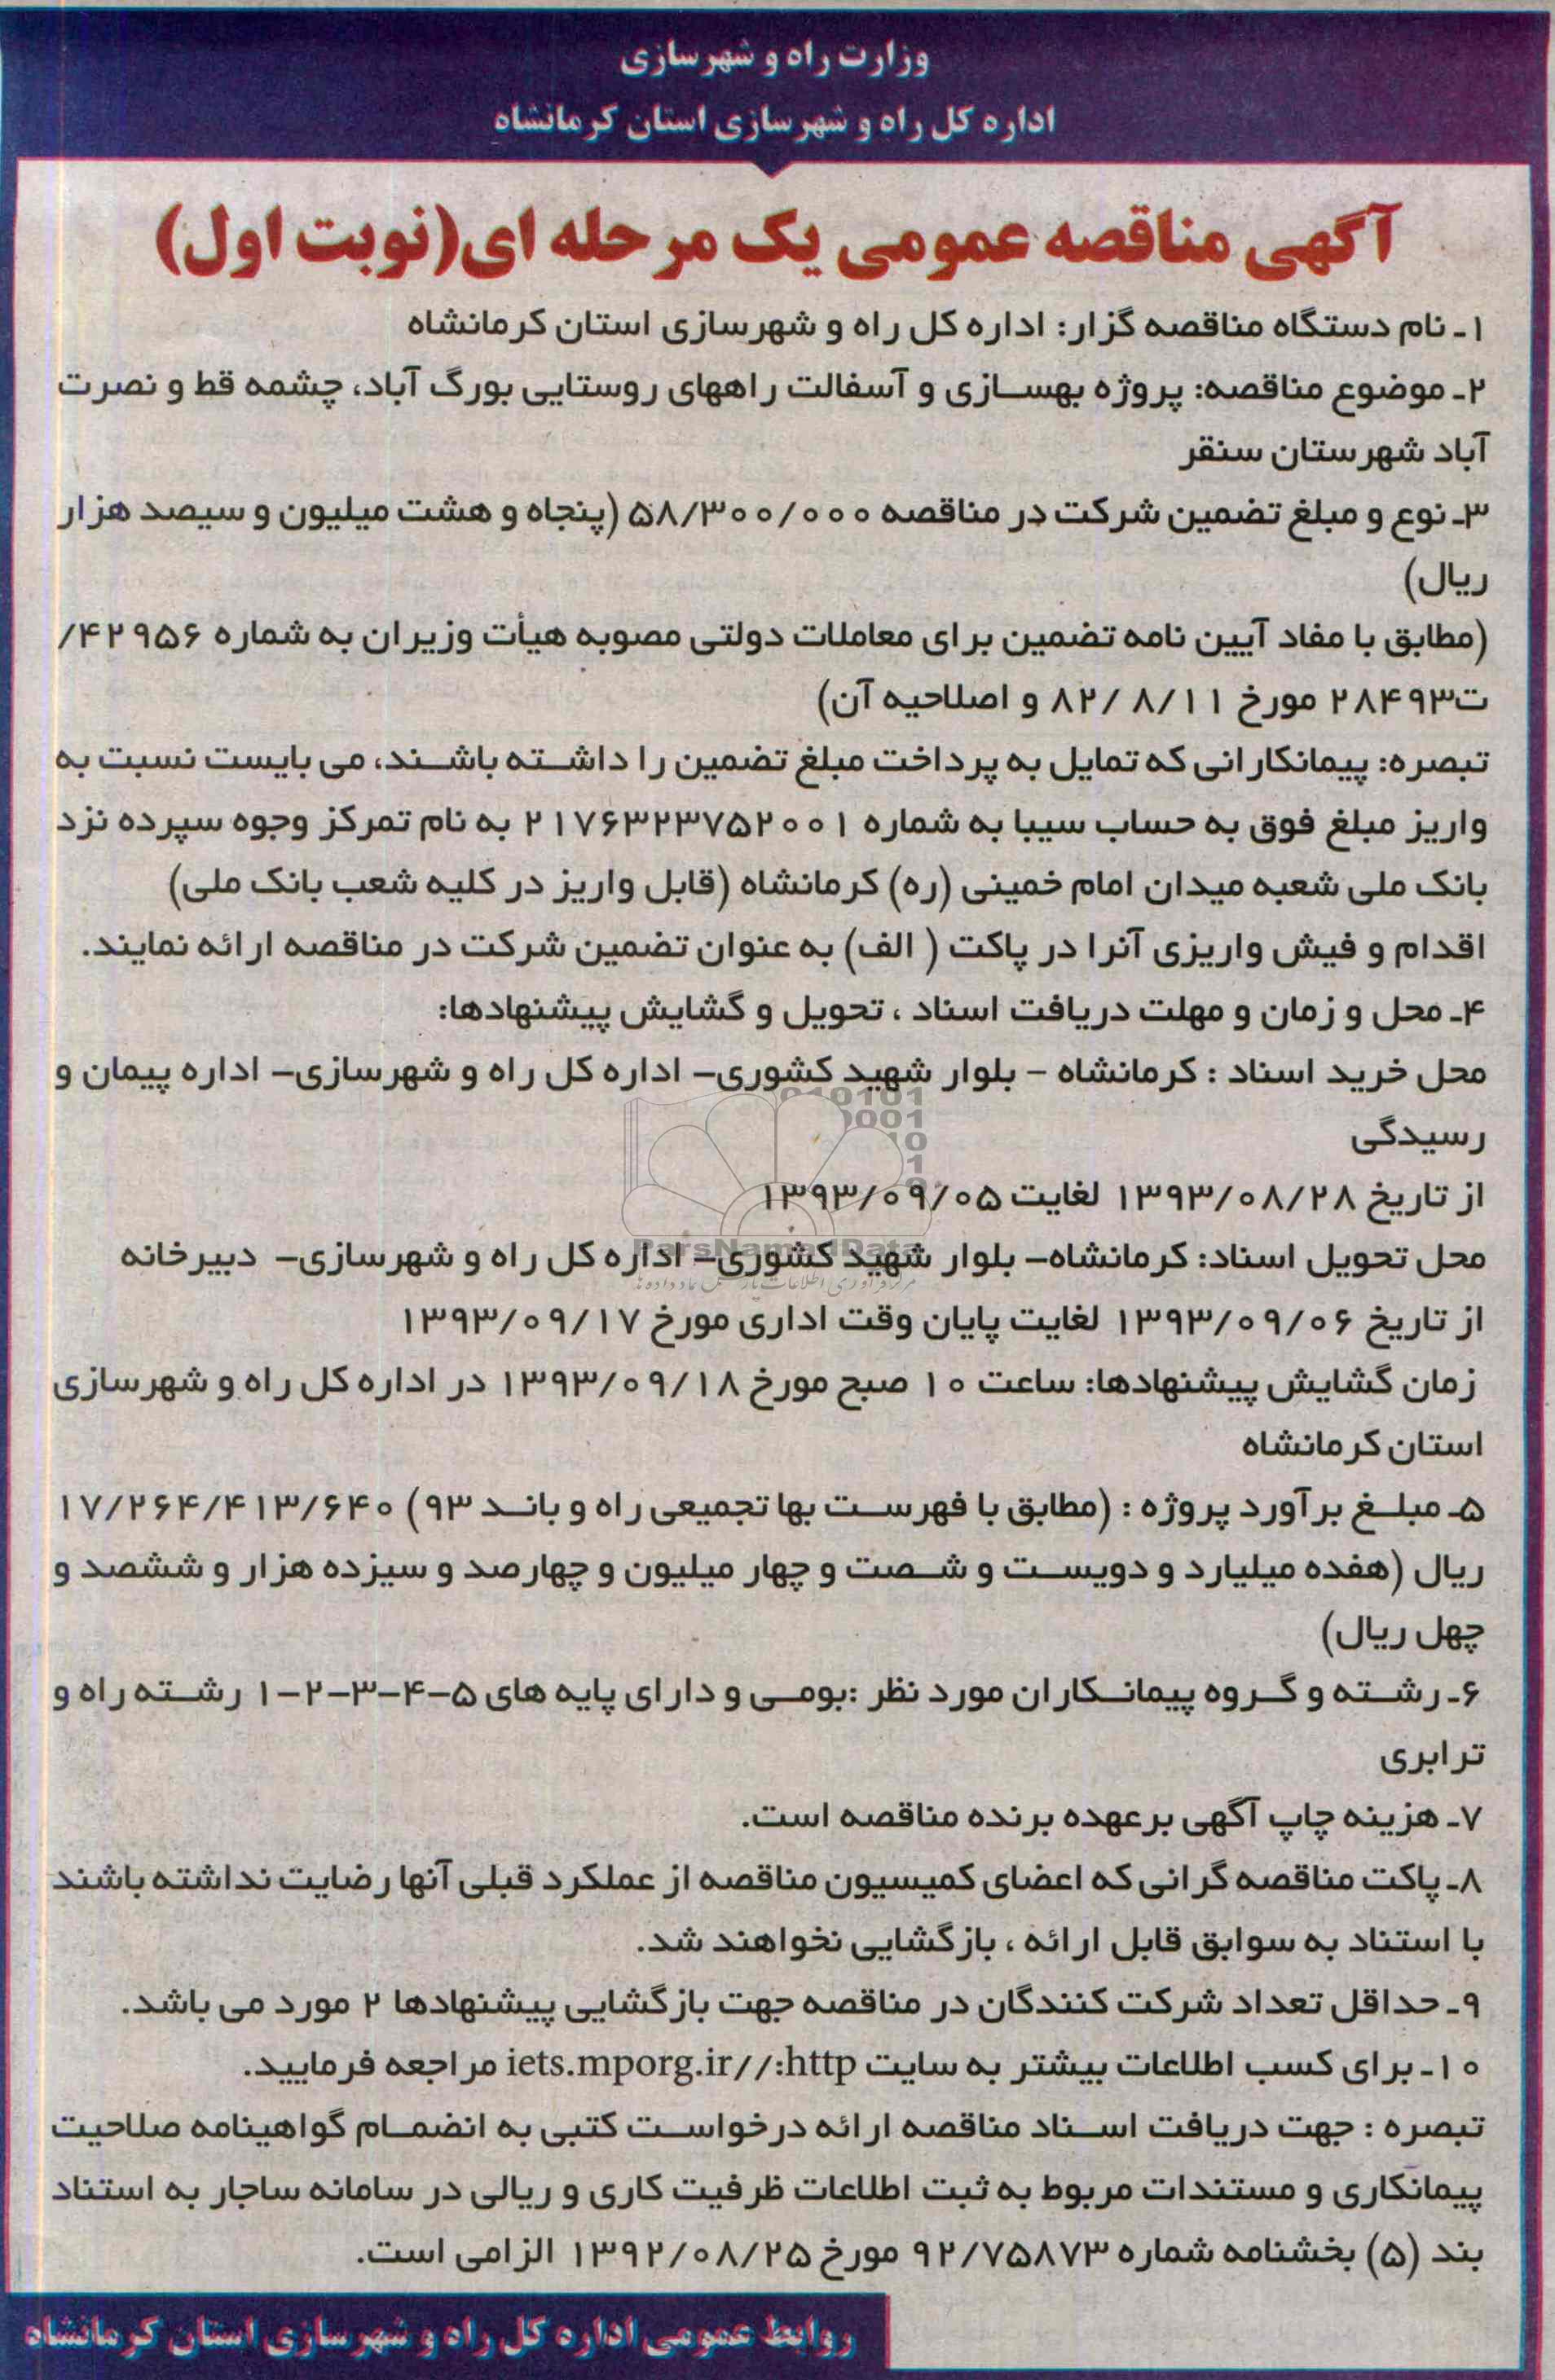 وزارت راه و شهرسازی
اداره کل راه و شهرسازی استان کرمانشاه
آگهی مناقصه عمومی یک مرحله ای(نوبت اول)
۱ـ نام دستگاه مناقصه گزار: اداره کل راه و شهرسازی استان کرمانشاه
۲ـ موضوع مناقصه: پروژه بهسازی و آسفالت راههای روستایی بورگ آباد، چشمه قط و نصرت
آباد شهرستان سنقر
۳ـ نوع و مبلغ تضمین شرکت در مناقصه ۵۸/۳۰۰/۰۰۰ (پنجاه و هشت میلیون و سیصد هزار
ریال)
(مطابق با مفاد آیین نامه تضمین برای معاملات دولتی مصوبه هیأت وزیران به شماره ۴۲۹۵۶/
ت۲۸۴۹۳ مورخ ۸۲/۸/۱۱ و اصلاحیه آن)
تبصره: پیمانکارانی که تمایل به پرداخت مبلغ تضمین را داشته باشند، می بایست نسبت به
واریز مبلغ فوق به حساب سیبا به شماره ۲۱۷۶۳۲۳۷۵۲۰۰۱ به نام تمرکز وجوه سپرده نزد
بانک ملی شعبه میدان امام خمینی (ره) کرمانشاه (قابل واریز در کلیه شعب بانک ملی)
اقدام و فیش واریزی آنرا در پاکت ( الف) به عنوان تضمین شرکت در مناقصه ارائه نمایند.
۴ـ محل و زمان و مهلت دریافت اسناد ، تحویل و گشایش پیشنهادها:
محل خرید اسناد : کرمانشاه – بلوار شهید کشوری– اداره کل راه و شهرسازی– اداره پیمان و
رسیدگی
از تاریخ ۱۳۹۳/۰۸/۲۸ لغایت ۱۳۹۳/۰۹/۰۵
محل تحویل اسناد: کرمانشاه– بلوار شهید کشوری– اداره کل راه و شهرسازی– دبیرخانه
ParsNamadData
از تاریخ ۱۳۹۳/۰۹/۰۶ لغایت پایان وقت اداری مورخ ۱۳۹۳/۰۹/۱۷
زمان گشایش پیشنهادها: ساعت ۱۰ صبح مورخ ۱۳۹۳/۰۹/۱۸ در اداره کل راه و شهرسازی
استان کرمانشاه
۵ـ مبلغ برآورد پروژه : (مطابق با فهرست بها تجمیعی راه و باند ۹۳) ۱۷/۲۶۴/۴۱۳/۶۴۰
ریال (هفده میلیارد و دویست و شصت و چهار میلیون و چهارصد و سیزده هزار و ششصد و
چهل ریال)
۶ـ رشته و گروه پیمانکاران مورد نظر :بومی و دارای پایه های ۵–۴–۳–۲–۱ رشته راه و
ترابری
۷ـ هزینه چاپ آگهی برعهده برنده مناقصه است.
۸ـ پاکت مناقصه گرانی که اعضای کمیسیون مناقصه از عملکرد قبلی آنها رضایت نداشته باشند
با استناد به سوابق قابل ارائه ، بازگشایی نخواهند شد.
۹ـ حداقل تعداد شرکت کنندگان در مناقصه جهت بازگشایی پیشنهادها ۲ مورد می باشد.
۱۰ـ برای کسب اطلاعات بیشتر به سایت iets.mporg.ir//:http مراجعه فرمایید.
تبصره : جهت دریافت اسناد مناقصه ارائه درخواست کتبی به انضمام گواهینامه صلاحیت
پیمانکاری و مستندات مربوط به ثبت اطلاعات ظرفیت کاری و ریالی در سامانه ساجار به استناد
بند (۵) بخشنامه شماره ۹۲/۷۵۸۷۳ مورخ ۱۳۹۲/۰۸/۲۵ الزامی است.
روابط عمومی اداره کل راه و شهرسازی استان کرمانشاه